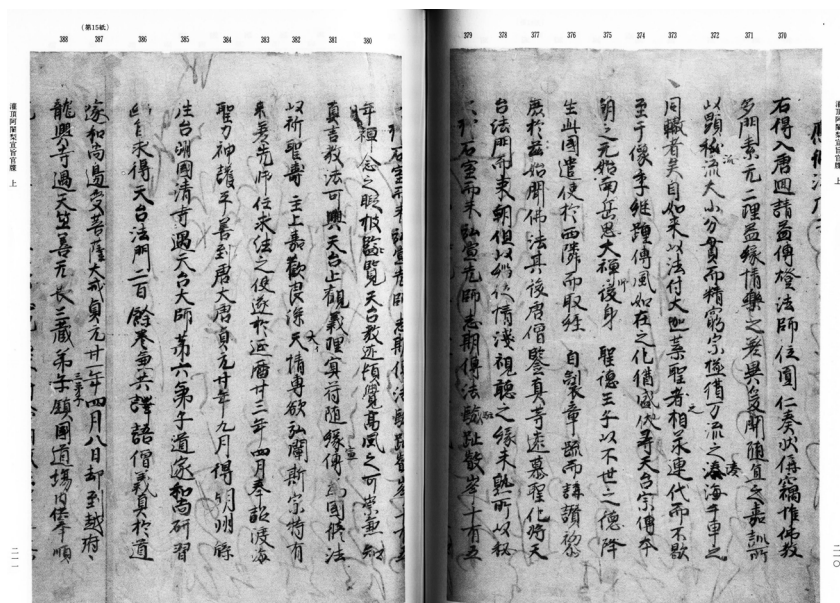 灌頂阿闍梨宣旨官牒 上
370
371
372
373
374
375
376
377
378
379
右得入唐廻請益傳燈法師位圓仁奏状偁竊惟佛教
多門素元二理益縁情樂之差異爰開随宜之嘉訓所
以顕秘派流大小分貫而精窮宗極借万流之湊海牛車之
同轍者矣自如来以法付大迦葉聖者相承連代而不歇
至于像季継踵傳風如在之化偕盛伏尋天台宗傳本
朝之元始南岳思大禅師後身 聖德王子以不世之德降
生此國遣使於西隣而取経 自製章疏而講讃黎
庶於茲始聞佛法其後唐僧鑒真等遠慕聖化将天
台法門而東朝但以時代情淺視聽之縁未熟所以权
石室而未弘宣先師志期傳法
二一〇
380
381
382
383
384
385
386
（第15紙）
387
388
年禎念之暇披覧天台教迹頗覺髙風之可崇兼知
真言教法可興天台止觀義理冥符随縁傳宣為國修法
以祈聖壽 主上嘉歡良深天情専欲弘闡斯宗特有
先師任求法之使遂於延暦廿三年四月奉詔渡海
聖力神護平善到唐大唐貞元廿年九月得明州牒
往台州國清寺遇天台大師第六弟子道邃和尚研習
幽旨求得天台法門二百餘巻並共譯語僧義真於道
邃和尚邊受菩薩大戒貞元廿一年四月八日却到越府
龍興寺遇天竺善无畏三蔵弟子鎮國道場内供奉順
灌頂阿闍梨宣旨官牒 上
二一一